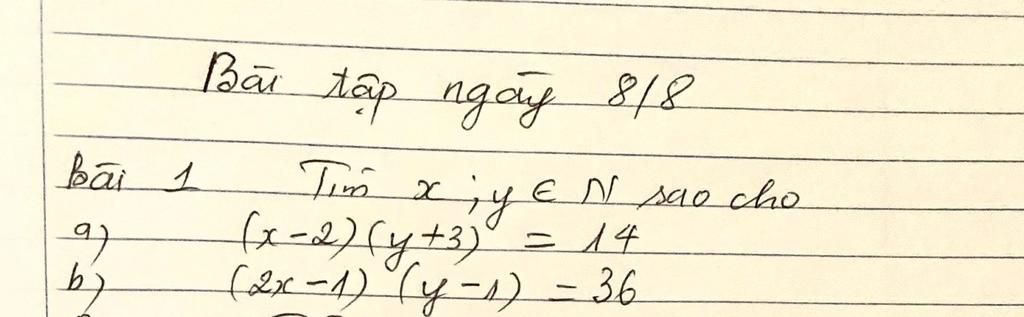 Bài tập ngày 8/8
Bài 1 Tìm x ; y ∈ N sao cho
a) (x-2)(y+3) = 14
b) (2x-1) (y-1) = 36